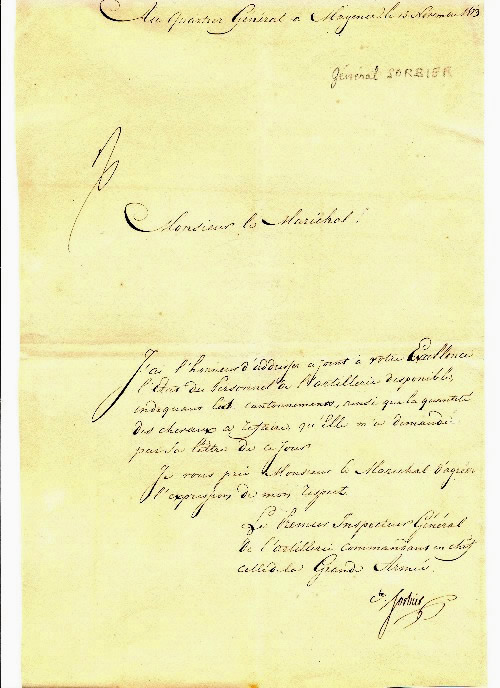 Au Quartier Général a Mayence le 13 Novembre 1813
Général SORBIER
Monsieur le Maréchal.
J'ai l'honneur d'addresser ci joint à votre Excellence
l'Etat du Personnel de l'artillerie disponible,
indiquant les cantonnements, ainsi que la quantité
des chevaux a refaire qu'Elle m'a demandé
par sa lettre de ce jour
Je vous prie Monsieur le Maréchal d'agréer
l'expression de mon respect
Le Premier Inspecteur Général
de l'artillerie Commandant en chef
celle de la Grande Armée.
Cte Sorbier